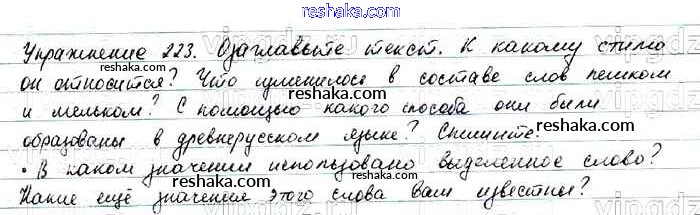 reshaka.ru
Упражнение 223. Озаглавьте текст. К какому стилю
он относится? Что изменилось в составе слов пешком
и мельком? С помощью какого способа они были
образованы в древнерусском языке? Спишите.
• В каком значении использовано выделенное слово?
Какие ещё значения этого слова вам известны?
reshaka.ru